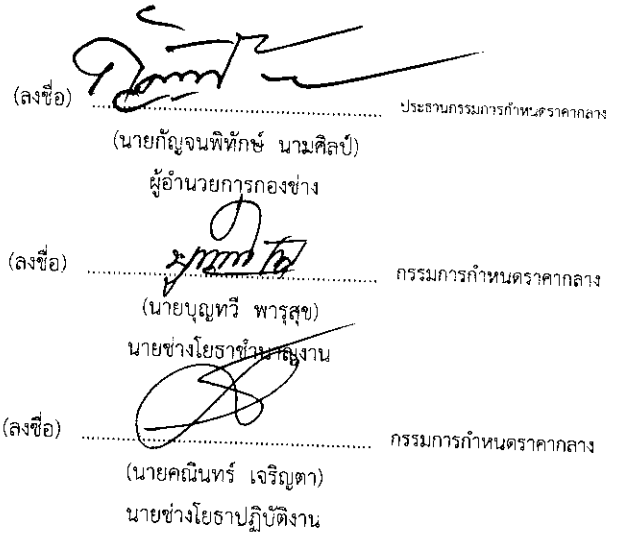 (ลงชื่อ) ................................................ ประธานกรรมการกำหนดราคากลาง
(นายกัญจนพิทักษ์ นามศิลป์)
ผู้อำนวยการกองช่าง
(ลงชื่อ) ................................................ กรรมการกำหนดราคากลาง
(นายบุญทวี พารุสุข)
นายช่างโยธาชำนาญงาน
(ลงชื่อ) ................................................ กรรมการกำหนดราคากลาง
(นายคณินทร์ เจริญตา)
นายช่างโยธาปฏิบัติงาน